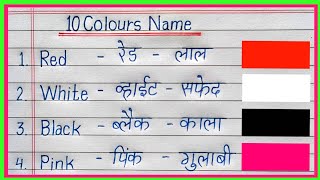 10 Colours Name
1. Red - रेड - लाल
2. White - व्हाईट - सफेद
3. Black - ब्लैक - काला
4. Pink - पिंक - गुलाबी